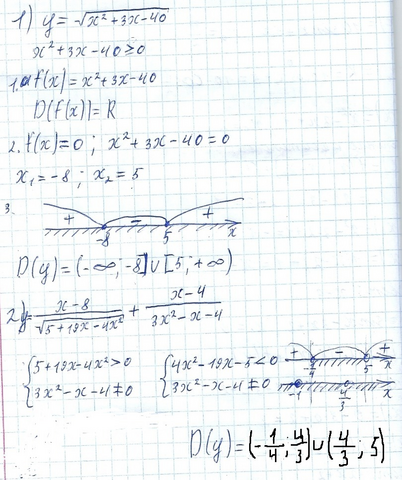 1) y = √x²+3x-40
x²+3x-40≥0
1. f(x)=x²+3x-40
D(f(x))=R
2. f(x)=0; x²+3x-40=0
x₁=-8; x₂=5
3.
+ - +
-8 5 x
D(y)=(-∞;-8]∪[5;+∞)
2) y= x-8/√5+19x-4x² + x-4/3x²-x-4
{5+19x-4x²>0 {4x²-19x-5<0 + - +
-1/4 5 x
{3x²-x-4≠0 {3x²-x-4≠0
-1 4/3 x
D(y)=(-1/4;4/3)∪(4/3;5)